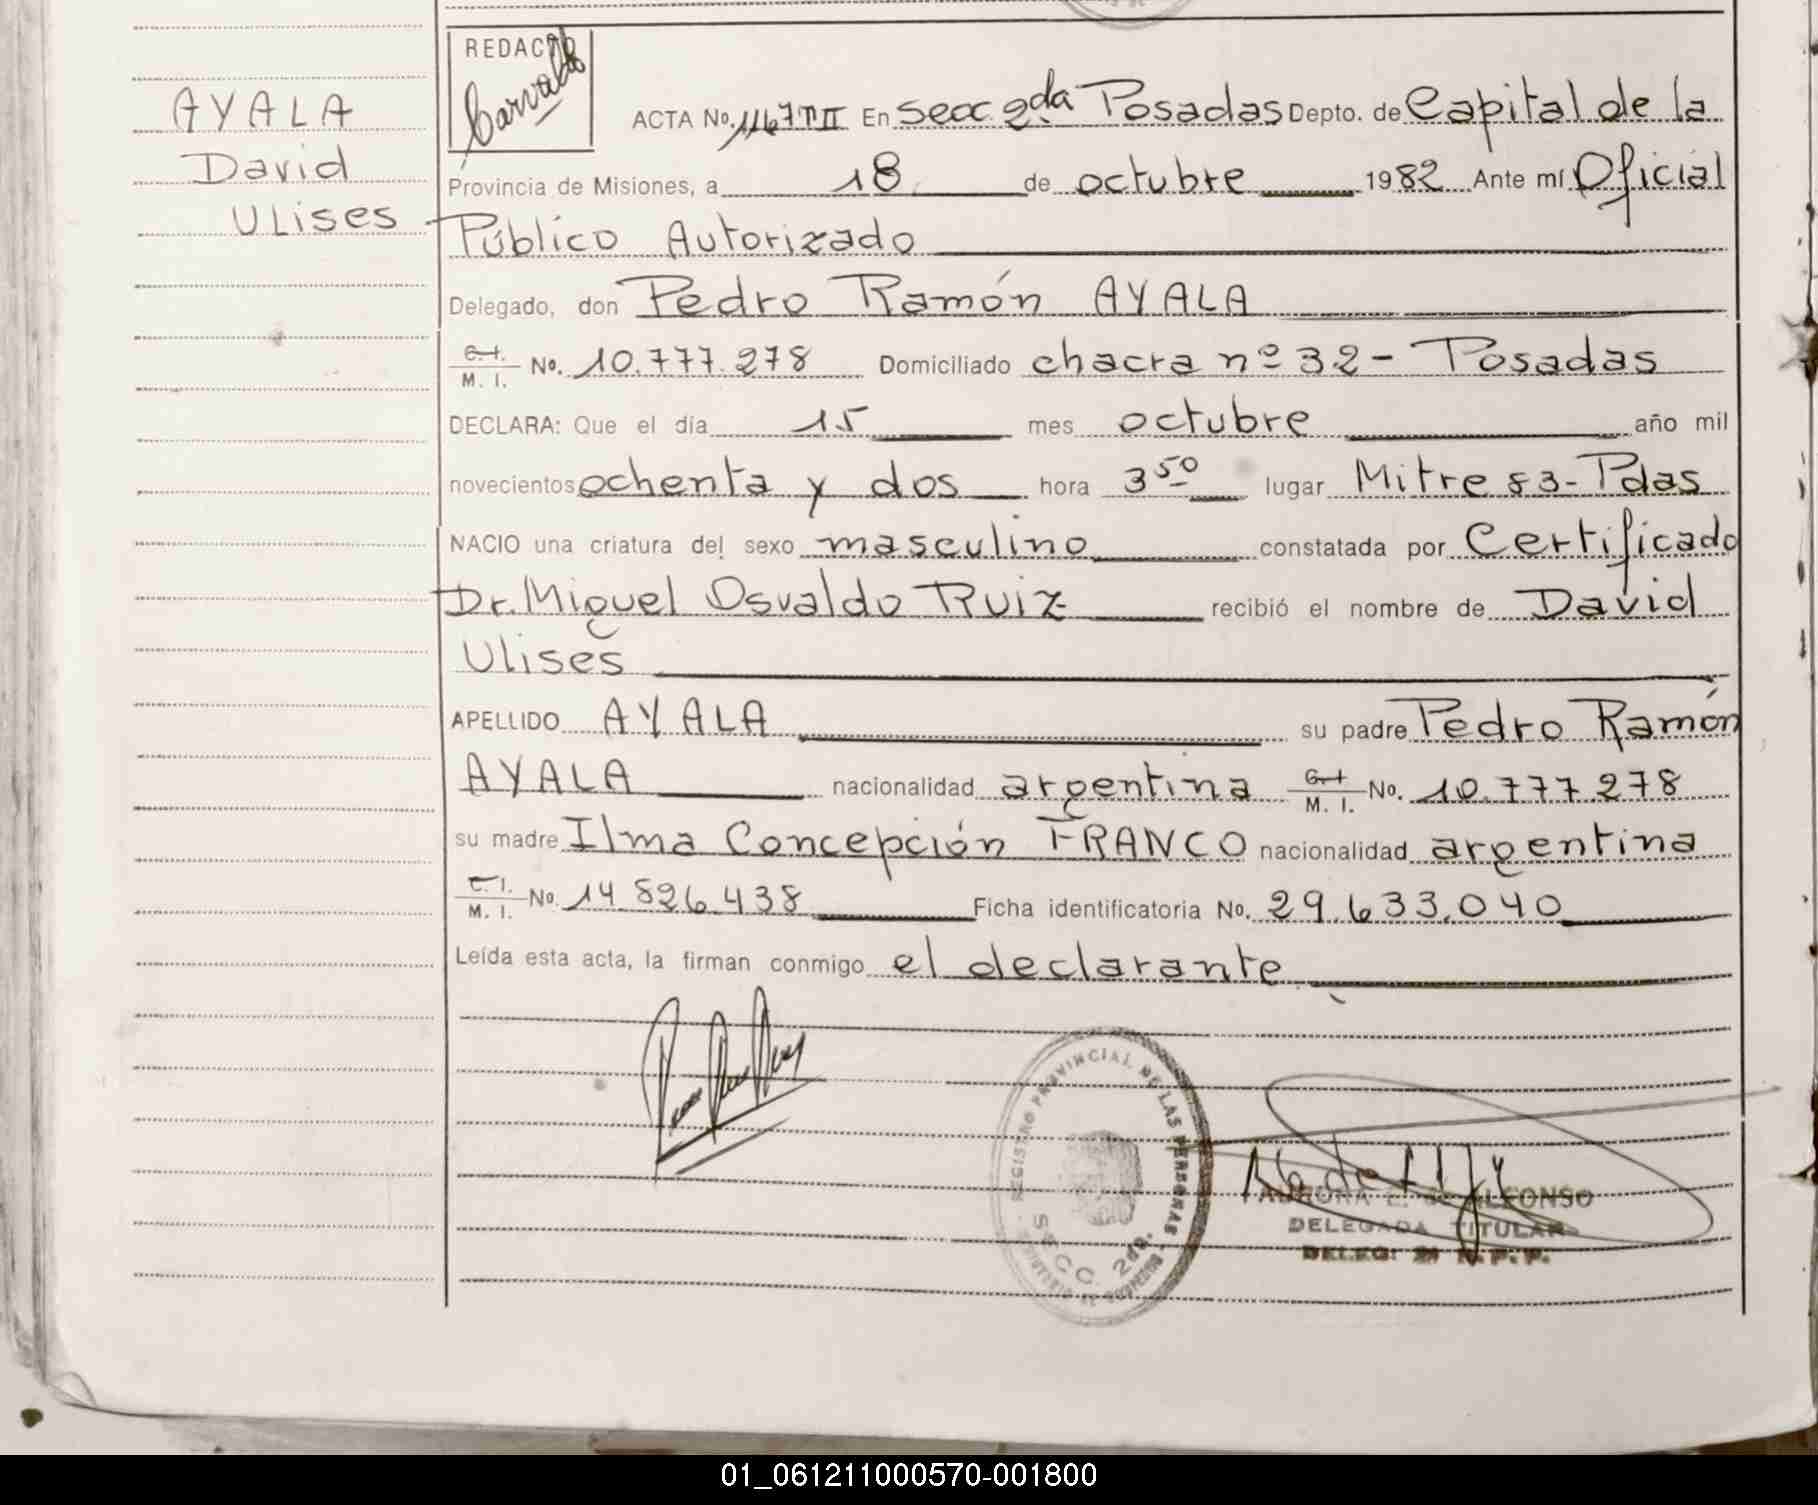 AYALA
David
ULises
REDACTO
Carvallo
ACTA No. 1167 T II En secc. 2da Posadas Depto. de Capital de la
Provincia de Misiones, a 18 de octubre 1982 Ante mí Oficial
Público Autorizado
Delegado, don Pedro Ramón AYALA
C. I. / M. I. No. 10.777.278 Domiciliado chacra nº 32 - Posadas
DECLARA: Que el día 15 mes octubre año mil
novecientos ochenta y dos hora 3 50 lugar Mitre 83 - Pdas
NACIO una criatura del sexo masculino constatada por Certificado
Dr. Miguel Osvaldo RUIZ recibió el nombre de David
Ulises
APELLIDO AYALA su padre Pedro Ramón
AYALA nacionalidad argentina C. I. / M. I. No. 10.777.278
su madre Ilma Concepción FRANCO nacionalidad argentina
C. I. / M. I. No. 14.826.438 Ficha identificatoria No. 29.633.040
Leída esta acta, la firman conmigo el declarante
REGISTRO PROVINCIAL DE LAS PERSONAS
SECC. 2da.
AURORA E. de ALFONSO
DELEGADA TITULAR
01_061211000570-001800